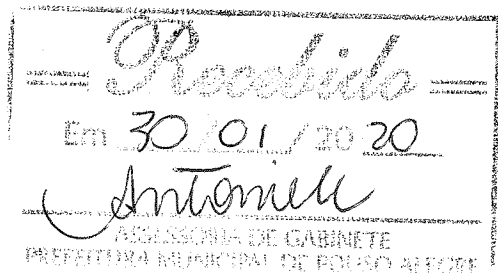 Recebido
Em 30/01/2020
Antoniele
ASSESSORIA DE GABINETE
PREFEITURA MUNICIPAL DE POUSO ALEGRE